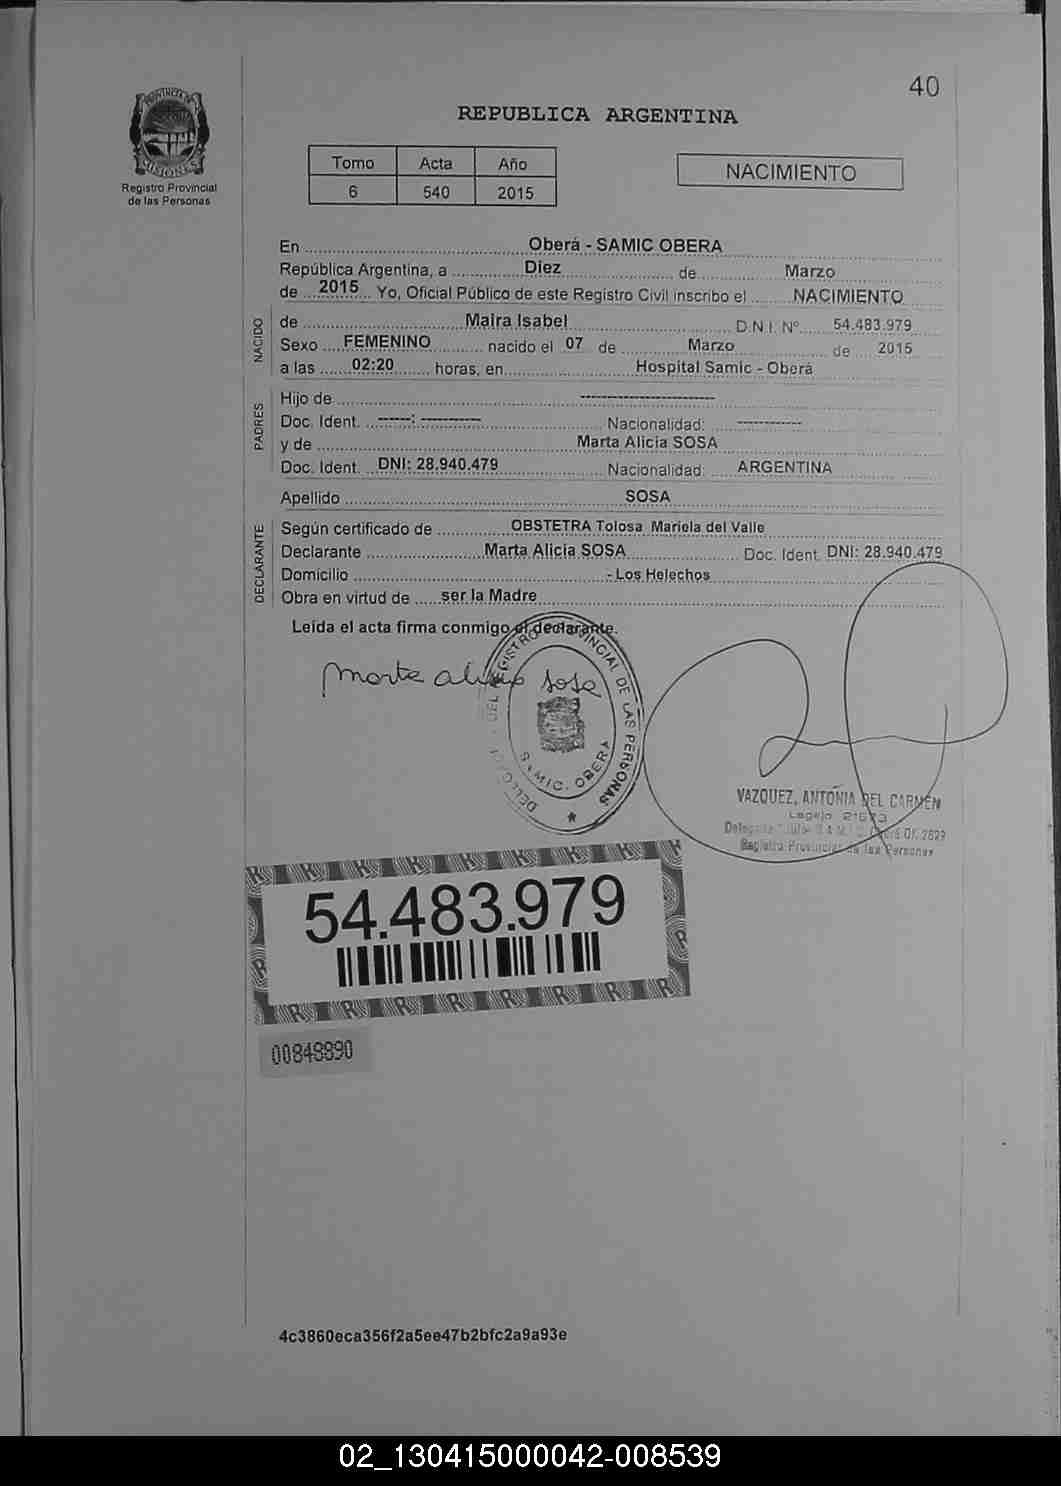 40
PROVINCIA DE
MISIONES
Registro Provincial
de las Personas
REPUBLICA ARGENTINA
Tomo Acta Año
6 540 2015
NACIMIENTO
En Oberá - SAMIC OBERA
República Argentina, a Diez de Marzo
de 2015 Yo, Oficial Público de este Registro Civil inscribo el NACIMIENTO
NACIDO
de Maira Isabel D.N.I. Nº 54.483.979
Sexo FEMENINO nacido el 07 de Marzo de 2015
a las 02:20 horas, en Hospital Samic - Oberá
PADRES
Hijo de ------------------------
Doc. Ident. ------: ----------- Nacionalidad: ------------
y de Marta Alicia SOSA
Doc. Ident. DNI: 28.940.479 Nacionalidad: ARGENTINA
Apellido SOSA
DECLARANTE
Según certificado de OBSTETRA Tolosa Mariela del Valle
Declarante Marta Alicia SOSA Doc. Ident. DNI: 28.940.479
Domicilio - Los Helechos
Obra en virtud de ser la Madre
Leída el acta firma conmigo el declarante.
Marta alicia sosa
DEL REGISTRO PROVINCIAL DE LAS PERSONAS
SAMIC. OBERA
VAZQUEZ, ANTONIA DEL CARMEN
Legajo
Registro Provincial de las Personas
54.483.979
00848890
4c3860eca356f2a5ee47b2bfc2a9a93e
02_130415000042-008539